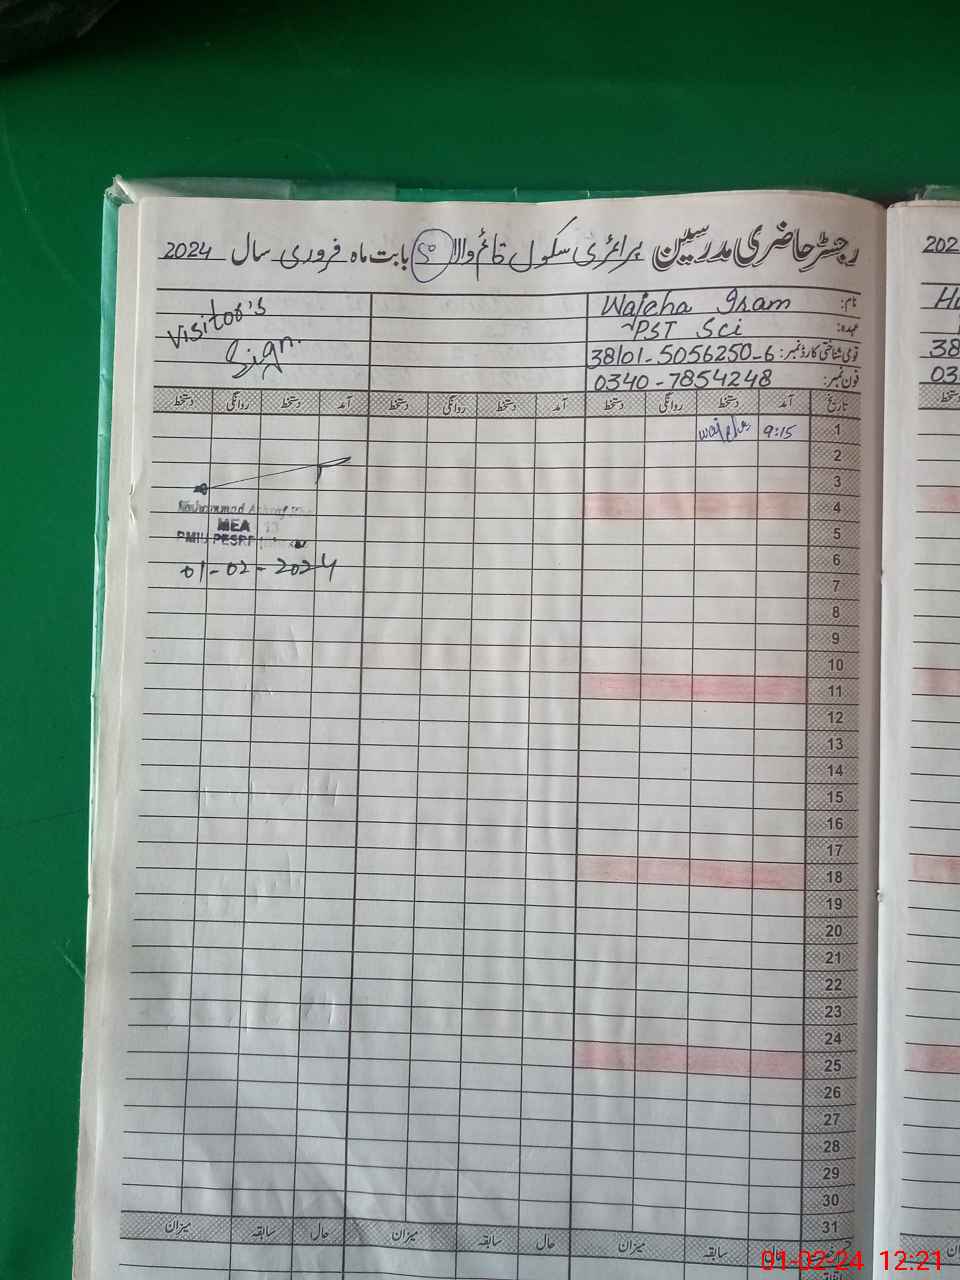 رجسٹر حاضری مدرسین پرائمری سکول قائم والا بابت ماہ فروری سال 2024
نام: Wajeha Iram
عہدہ: PST Sci
قومی شناختی کارڈ نمبر: 38101-5056250-6
فون نمبر: 0340-7854248
Visitor's
Sign.
تاریخ آمد دستخط روانگی دستخط آمد دستخط روانگی دستخط آمد دستخط روانگی دستخط
1 9:15 Wajeha
2
3
4
5
6
7
8
9
10
11
12
13
14
15
16
17
18
19
20
21
22
23
24
25
26
27
28
29
30
31
Muhammad
MEA
PMIU PESRP
01-02-2024
سابقہ میزان حال سابقہ میزان حال سابقہ میزان
202
38
03
01-02-24 12:21